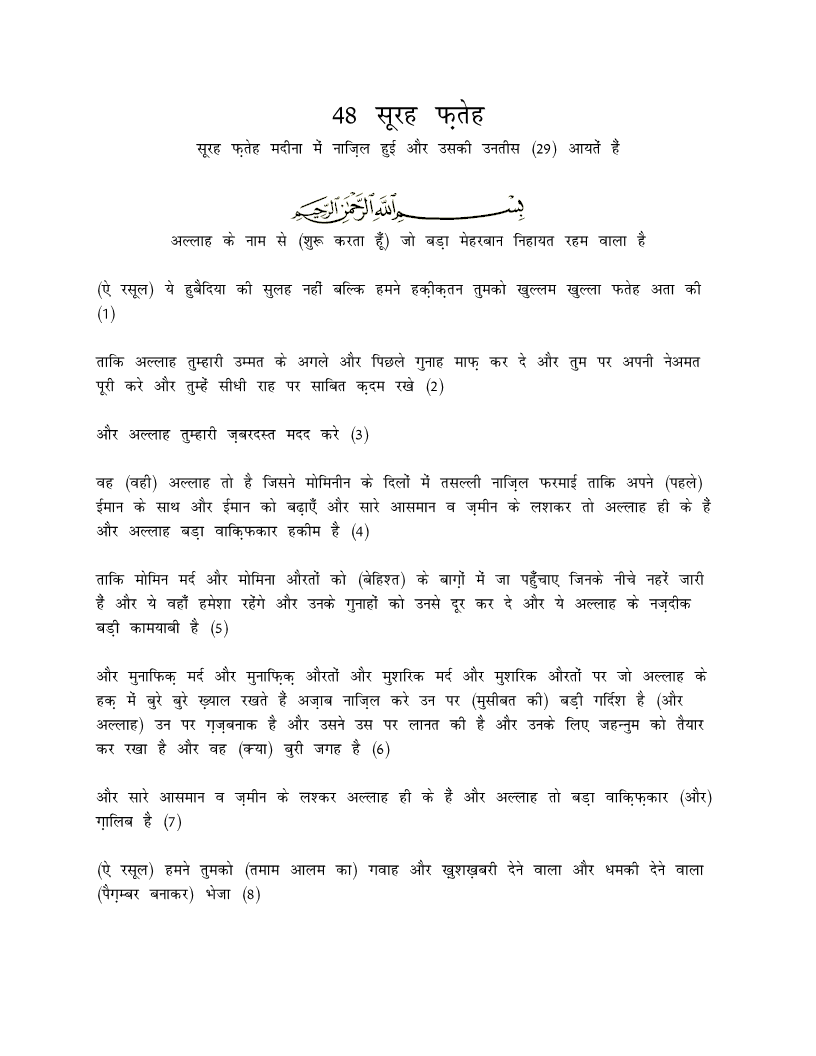 48 सूरह फ़तेह
सूरह फ़तेह मदीना में नाज़िल हुई और उसकी उनतीस (29) आयतें हैं
بِسْمِ اللَّهِ الرَّحْمَٰنِ الرَّحِيمِ
अल्लाह के नाम से (शुरू करता हूँ) जो बड़ा मेहरबान निहायत रहम वाला है
(ऐ रसूल) ये हुबैदिया की सुलह नहीं बल्कि हमने हक़ीक़तन तुमको खुल्लम खुल्ला फतेह अता की
(1)
ताकि अल्लाह तुम्हारी उम्मत के अगले और पिछले गुनाह माफ़ कर दे और तुम पर अपनी नेअमत
पूरी करे और तुम्हें सीधी राह पर साबित क़दम रखे (2)
और अल्लाह तुम्हारी ज़बरदस्त मदद करे (3)
वह (वही) अल्लाह तो है जिसने मोमिनीन के दिलों में तसल्ली नाज़िल फरमाई ताकि अपने (पहले)
ईमान के साथ और ईमान को बढ़ाएँ और सारे आसमान व ज़मीन के लशकर तो अल्लाह ही के हैं
और अल्लाह बड़ा वाकि़फकार हकीम है (4)
ताकि मोमिन मर्द और मोमिना औरतों को (बेहिश्त) के बाग़ों में जा पहुँचाए जिनके नीचे नहरें जारी
हैं और ये वहाँ हमेशा रहेंगे और उनके गुनाहों को उनसे दूर कर दे और ये अल्लाह के नज़दीक
बड़ी कामयाबी है (5)
और मुनाफिक़ मर्द और मुनाफि़क़ औरतों और मुशरिक मर्द और मुशरिक औरतों पर जो अल्लाह के
हक़ में बुरे बुरे ख़्याल रखते हैं अज़ाब नाज़िल करे उन पर (मुसीबत की) बड़ी गर्दिश है (और
अल्लाह) उन पर ग़ज़बनाक है और उसने उस पर लानत की है और उनके लिए जहन्नुम को तैयार
कर रखा है और वह (क्या) बुरी जगह है (6)
और सारे आसमान व ज़मीन के लश्कर अल्लाह ही के हैं और अल्लाह तो बड़ा वाकि़फ़कार (और)
ग़ालिब है (7)
(ऐ रसूल) हमने तुमको (तमाम आलम का) गवाह और ख़ुशख़बरी देने वाला और धमकी देने वाला
(पैग़म्बर बनाकर) भेजा (8)